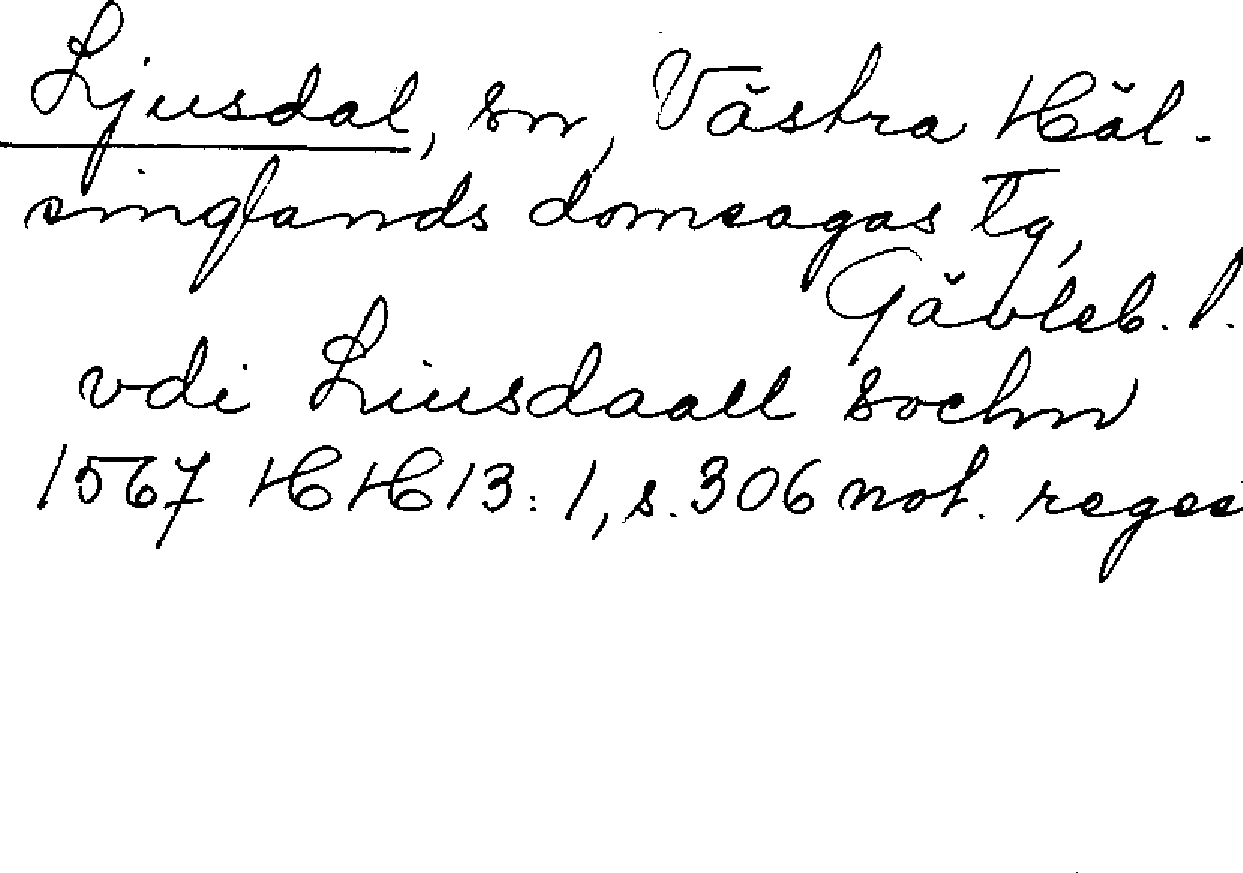 Ljusdal, sn, Västra Häl-
singlands domsagas tg,
Gävleb. l.
vdi Liusdaall sochn
1567 HH 13:1, s. 306 not. reges